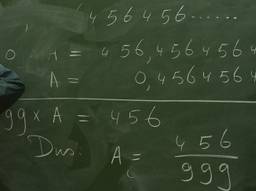 456456......
= 456,456456
A = 0,456456
99 x A = 456
Dus: A = 456
999